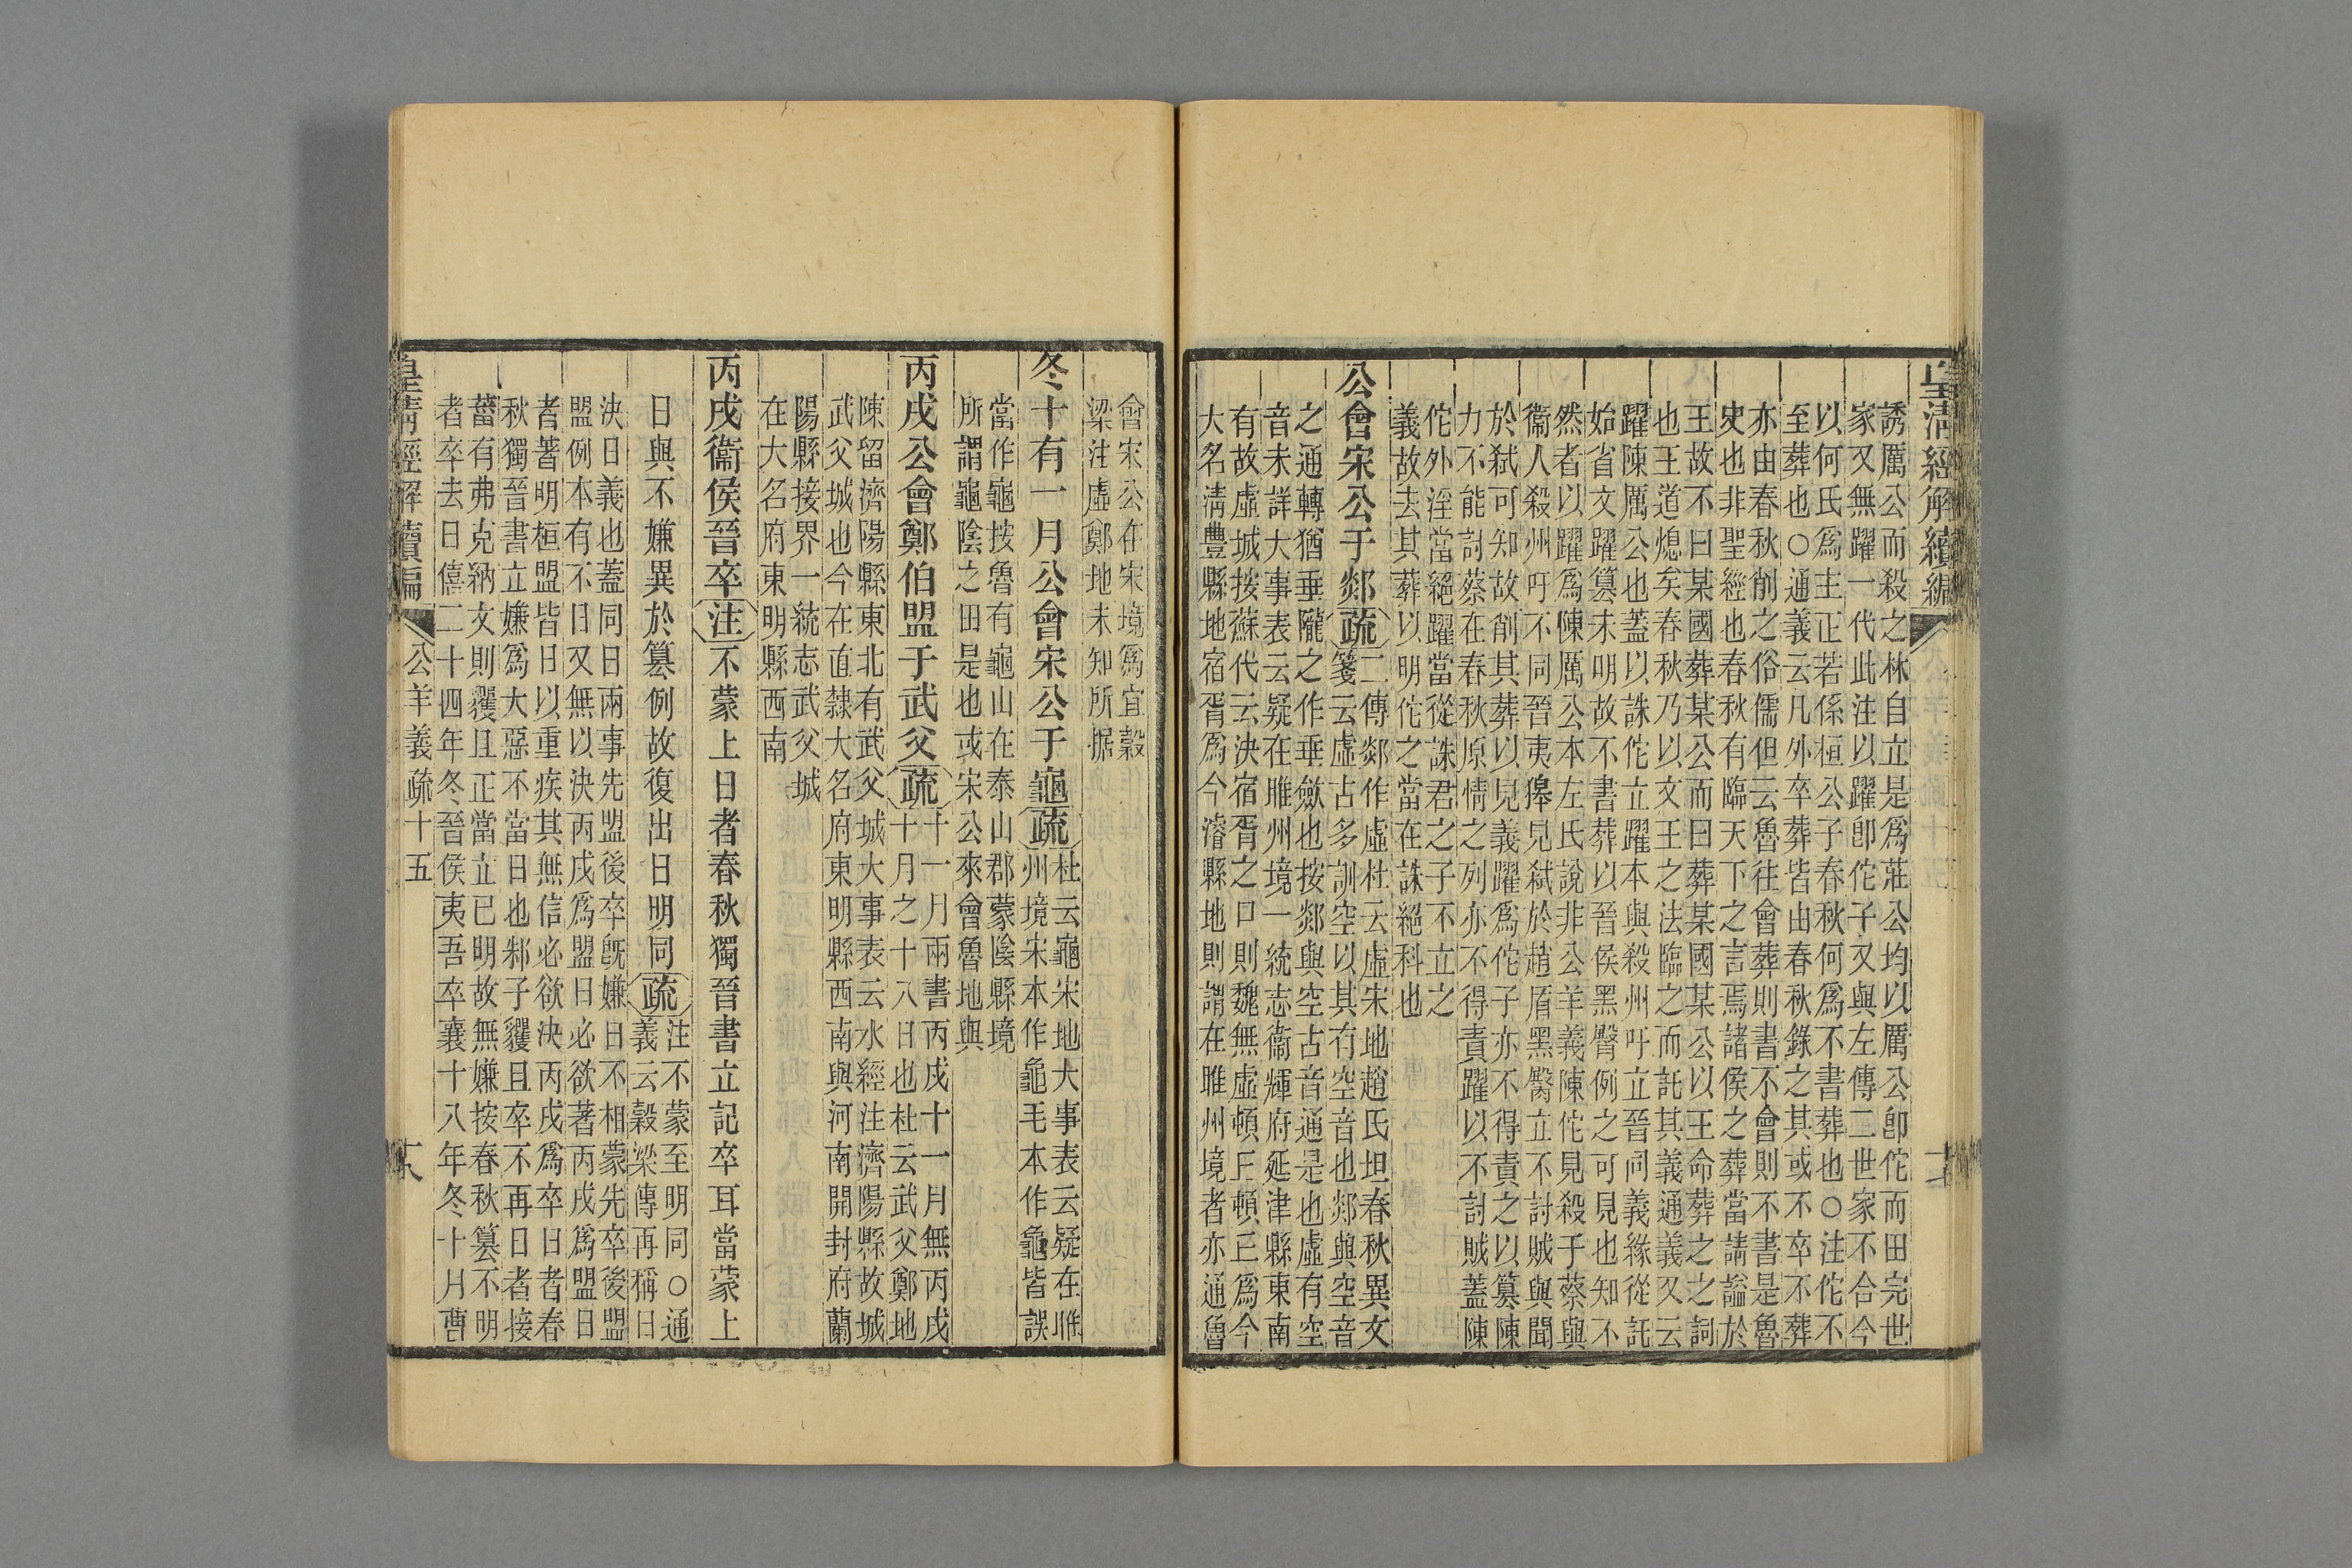 皇清經解續編
誘厲公而殺之林自立是爲莊公均以厲公卽佗而田完世
家又無躍一代此注以躍卽佗子又與左傳二世家不合今
以何氏爲主正若係桓公子春秋何爲不書葬也○注佗不
至葬也○通義云凡外卒葬皆由春秋錄之其或不卒不葬
亦由春秋削之俗儒但云魯往會葬則書不會則不書是魯
史也非聖經也春秋有臨天下之言焉諸侯之葬當請謚於
王故不曰某國葬某公而曰葬某國某公以王命葬之之詞
也王道熄矣春秋乃以文王之法臨之而託其義通義又云
躍陳厲公也蓋以誅佗立躍本與殺州吁立晉同義緣從託
始省文躍篡未明故不書葬以晉侯黑臀例之可見也知不
然者以躍爲陳厲公本左氏說非公羊義陳佗見殺于蔡與
衞人殺州吁不同晉夷獋見弑於趙盾黑臀立不討賊與聞
於弑可知故削其葬以見義躍爲佗子亦不得責之以篡陳
力不能討蔡在春秋原情之列亦不得責躍以不討賊蓋陳
佗外淫當絕躍當從誅君之子不立之
義故去其葬以明佗之當在誅絕科也
公會宋公于郯疏
二傳郯作虛杜云虛宋地趙氏坦春秋異文
箋云虛古多訓空以其有空音也郯與空音
之通轉猶垂隴之作垂歛也按郯與空古音通是也虛有空
音未詳大事表云疑在睢州境一統志衞輝府延津縣東南
有故虛城按蘇代云決宿胥之口則魏無虛頓王頓王爲今
大名淸豐縣地宿胥爲今濬縣地則謂在睢州境者亦通魯
會宋公在宋境爲宜穀
梁注虛鄭地未知所据
冬十有一月公會宋公于龜疏
杜云龜宋地大事表云疑在睢
州境宋本作龜毛本作龜皆誤
當作龜按魯有龜山在泰山郡蒙陰縣境
所謂龜陰之田是也或宋公來會魯地與
丙戌公會鄭伯盟于武父疏
十一月兩書丙戌十一月無丙戌
十月之十八日也杜云武父鄭地
陳留濟陽縣東北有武父城大事表云水經注濟陽縣故城
武父城也今在直隸大名府東明縣西南與河南開封府蘭
陽縣接界一統志武父城
在大名府東明縣西南
丙戌衞侯晉卒注不蒙上日者春秋獨晉書立記卒耳當蒙上
日與不嫌異於篡例故復出日明同疏
注不蒙至明同○通
義云穀梁傳再稱日
決日義也蓋同日兩事先盟後卒旣嫌日不相蒙先卒後盟
盟例本有不日又無以決丙戌爲盟日必欲著丙戌爲盟日
者著明桓盟皆日以重疾其無信必欲決丙戌爲卒日者春
秋獨晉書立嫌爲大惡不當日也邾子貜且卒不再日者接
菑有弗克納文則貜且正當立已明故無嫌按春秋篡不明
者卒去日僖二十四年冬晉侯夷吾卒襄十八年冬十月曹
皇清經解續編
公羊義疏十五
十八